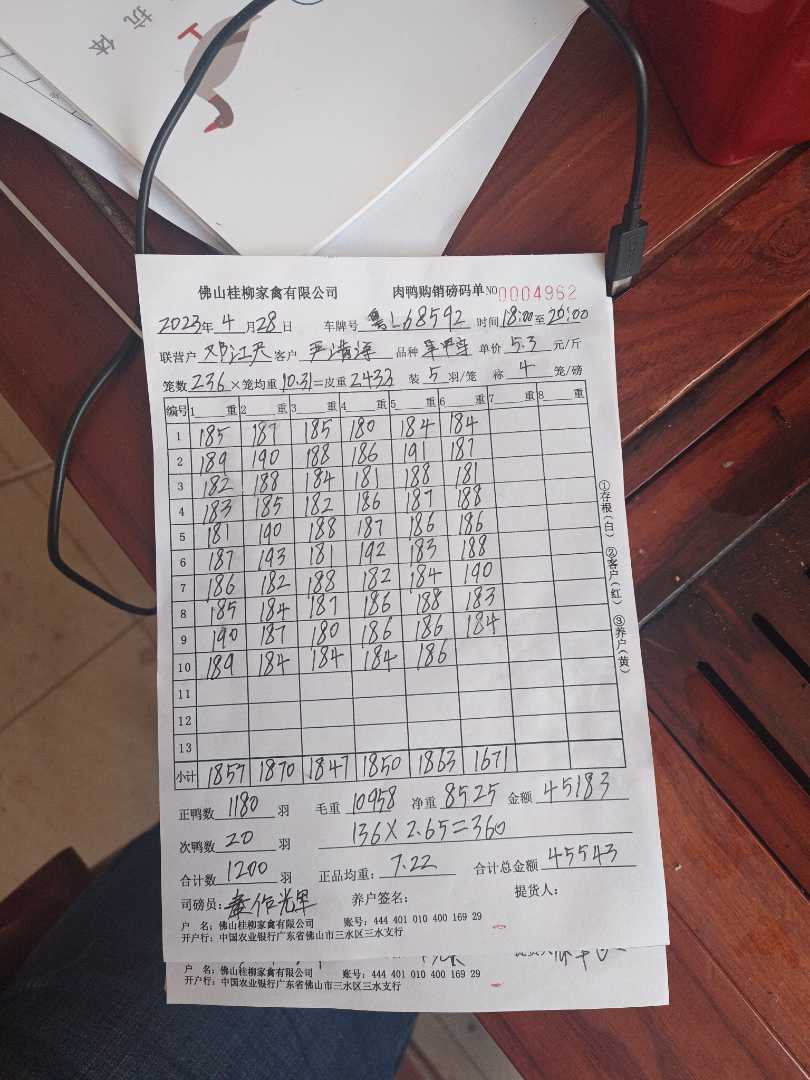 抗
体
佛山桂柳家禽有限公司 肉鸭购销磅码单 NO 0004962
2023年 4 月 28 日 车牌号 粤L68592 时间 18:00 至 20:00
联营户 邓江天 客户 品种 单价 5.3 元/斤
笼数 236 × 笼均重 10.31 = 皮重 2433 装 5 羽/笼 称 4 笼/磅
编号 1 重 2 重 3 重 4 重 5 重 6 重 7 重 8 重
1 185 187 185 180 184 184
2 189 190 188 186 191 187
3 182 188 184 181 188 181
4 183 185 182 186 187 188
5 181 190 188 187 186 186
6 187 193 181 192 183 188
7 186 182 188 182 184 190
8 185 184 187 186 188 183
9 190 187 180 186 186 184
10 189 184 184 184 186
11
12
13
小计 1857 1870 1847 1850 1863 1671
①存根(白) ②客户(红) ③养户(黄)
正鸭数 1180 羽 毛重 10958 净重 8525 金额 45183
次鸭数 20 羽 136×2.65=360
合计数 1200 羽 正品均重: 7.22 合计总金额 45543
司磅员: 作辉 养户签名: 提货人:
户 名: 佛山桂柳家禽有限公司 账号: 444 401 010 400 169 29
开户行: 中国农业银行广东省佛山市三水区三水支行
户 名: 佛山桂柳家禽有限公司 账号: 444 401 010 400 169 29
开户行: 中国农业银行广东省佛山市三水区三水支行